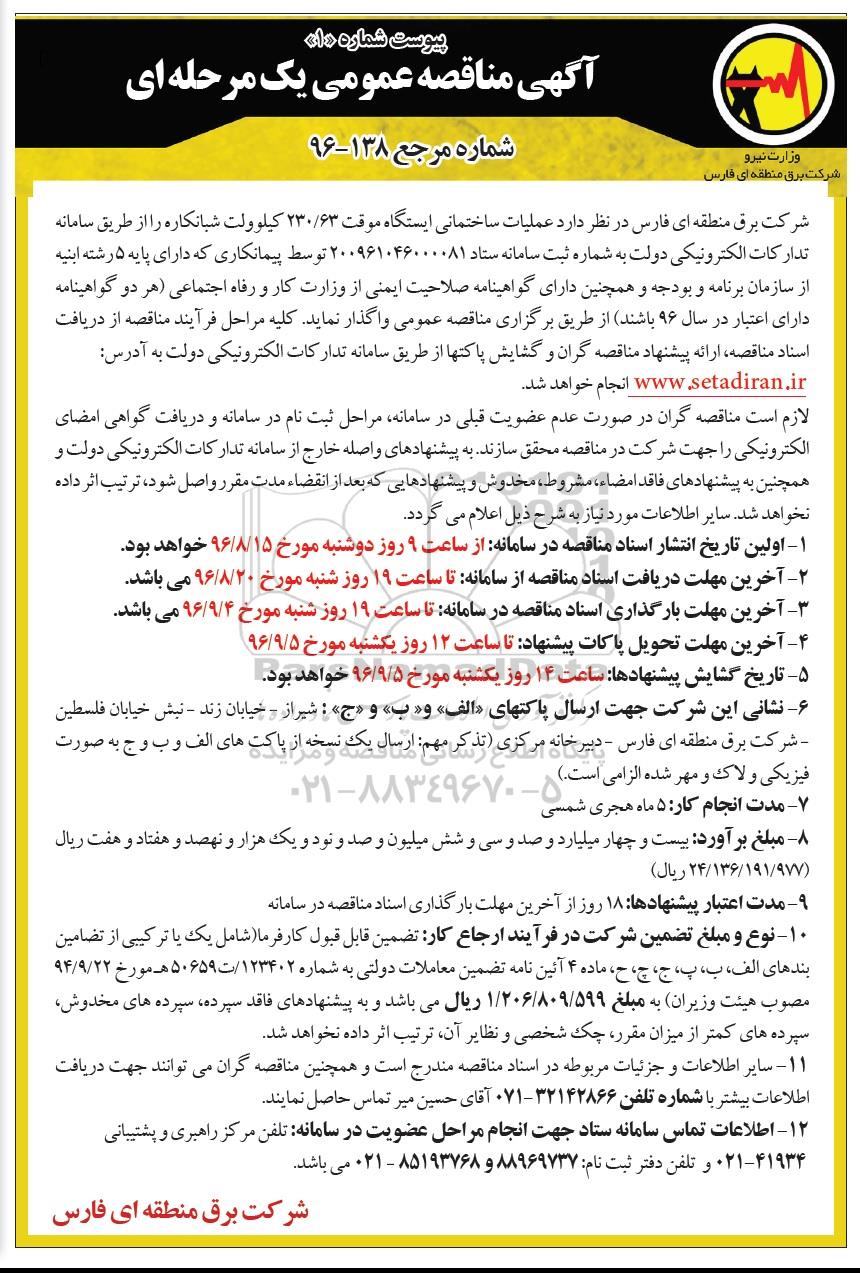 پیوست شماره «۱»
آگهی مناقصه عمومی یک مرحله ای
شماره مرجع ۱۳۸-۹۶
وزارت نیرو
شرکت برق منطقه ای فارس
شرکت برق منطقه ای فارس در نظر دارد عملیات ساختمانی ایستگاه موقت ۲۳۰/۶۳ کیلوولت شبانکاره را از طریق سامانه
تدارکات الکترونیکی دولت به شماره ثبت سامانه ستاد ۲۰۰۹۶۱۰۴۶۰۰۰۰۸۱ توسط پیمانکاری که دارای پایه ۵ رشته ابنیه
از سازمان برنامه و بودجه و همچنین دارای گواهینامه صلاحیت ایمنی از وزارت کار و رفاه اجتماعی (هر دو گواهینامه
دارای اعتبار در سال ۹۶ باشند) از طریق برگزاری مناقصه عمومی واگذار نماید. کلیه مراحل فرآیند مناقصه از دریافت
اسناد مناقصه، ارائه پیشنهاد مناقصه گران و گشایش پاکتها از طریق سامانه تدارکات الکترونیکی دولت به آدرس:
www.setadiran.ir انجام خواهد شد.
لازم است مناقصه گران در صورت عدم عضویت قبلی در سامانه، مراحل ثبت نام در سامانه و دریافت گواهی امضای
الکترونیکی را جهت شرکت در مناقصه محقق سازند. به پیشنهادهای واصله خارج از سامانه تدارکات الکترونیکی دولت و
همچنین به پیشنهادهای فاقد امضاء، مشروط، مخدوش و پیشنهادهایی که بعد از انقضاء مدت مقرر واصل شود، ترتیب اثر داده
نخواهد شد. سایر اطلاعات مورد نیاز به شرح ذیل اعلام می گردد.
۱- اولین تاریخ انتشار اسناد مناقصه در سامانه: از ساعت ۹ روز دوشنبه مورخ ۹۶/۸/۱۵ خواهد بود.
۲- آخرین مهلت دریافت اسناد مناقصه از سامانه: تا ساعت ۱۹ روز شنبه مورخ ۹۶/۸/۲۰ می باشد.
۳- آخرین مهلت بارگذاری اسناد مناقصه در سامانه: تا ساعت ۱۹ روز شنبه مورخ ۹۶/۹/۴ می باشد.
۴- آخرین مهلت تحویل پاکات پیشنهاد: تا ساعت ۱۲ روز یکشنبه مورخ ۹۶/۹/۵
۵- تاریخ گشایش پیشنهادها: ساعت ۱۴ روز یکشنبه مورخ ۹۶/۹/۵ خواهد بود.
۶- نشانی این شرکت جهت ارسال پاکتهای «الف» و« ب» و «ج» : شیراز - خیابان زند - نبش خیابان فلسطین
- شرکت برق منطقه ای فارس -دبیرخانه مرکزی (تذکر مهم: ارسال یک نسخه از پاکت های الف و ب و ج به صورت
فیزیکی و لاک و مهر شده الزامی است.)
۷- مدت انجام کار: ۵ ماه هجری شمسی
۸- مبلغ برآورد: بیست و چهار میلیارد و صد و سی و شش میلیون و صد و نود و یک هزار و نهصد و هفتاد و هفت ریال
(۲۴/۱۳۶/۱۹۱/۹۷۷ ریال)
۹- مدت اعتبار پیشنهادها: ۱۸ روز از آخرین مهلت بارگذاری اسناد مناقصه در سامانه
۱۰- نوع و مبلغ تضمین شرکت در فرآیند ارجاع کار: تضمین قابل قبول کارفرما(شامل یک یا ترکیبی از تضامین
بندهای الف، ب، پ، ج، چ، ح، ماده ۴ آئین نامه تضمین معاملات دولتی به شماره ۱۲۳۴۰۲/ت۵۰۶۵۹ هـ مورخ ۹۴/۹/۲۲
مصوب هیئت وزیران) به مبلغ ۱/۲۰۶/۸۰۹/۵۹۹ ریال می باشد و به پیشنهادهای فاقد سپرده، سپرده های مخدوش،
سپرده های کمتر از میزان مقرر، چک شخصی و نظایر آن، ترتیب اثر داده نخواهد شد.
۱۱- سایر اطلاعات و جزئیات مربوطه در اسناد مناقصه مندرج است و همچنین مناقصه گران می توانند جهت دریافت
اطلاعات بیشتر با شماره تلفن ۳۲۱۴۲۸۶۶-۰۷۱ آقای حسین میر تماس حاصل نمایند.
۱۲- اطلاعات تماس سامانه ستاد جهت انجام مراحل عضویت در سامانه: تلفن مرکز راهبری و پشتیبانی
۴۱۹۳۴-۰۲۱ و تلفن دفتر ثبت نام: ۸۸۹۶۹۷۳۷ و ۸۵۱۹۳۷۶۸ - ۰۲۱ می باشد.
شرکت برق منطقه ای فارس
ParsNamadData
پایگاه اطلاع رسانی مناقصه و مزایده
۰۲۱-۸۸۳۴۹۶۷۰-۵